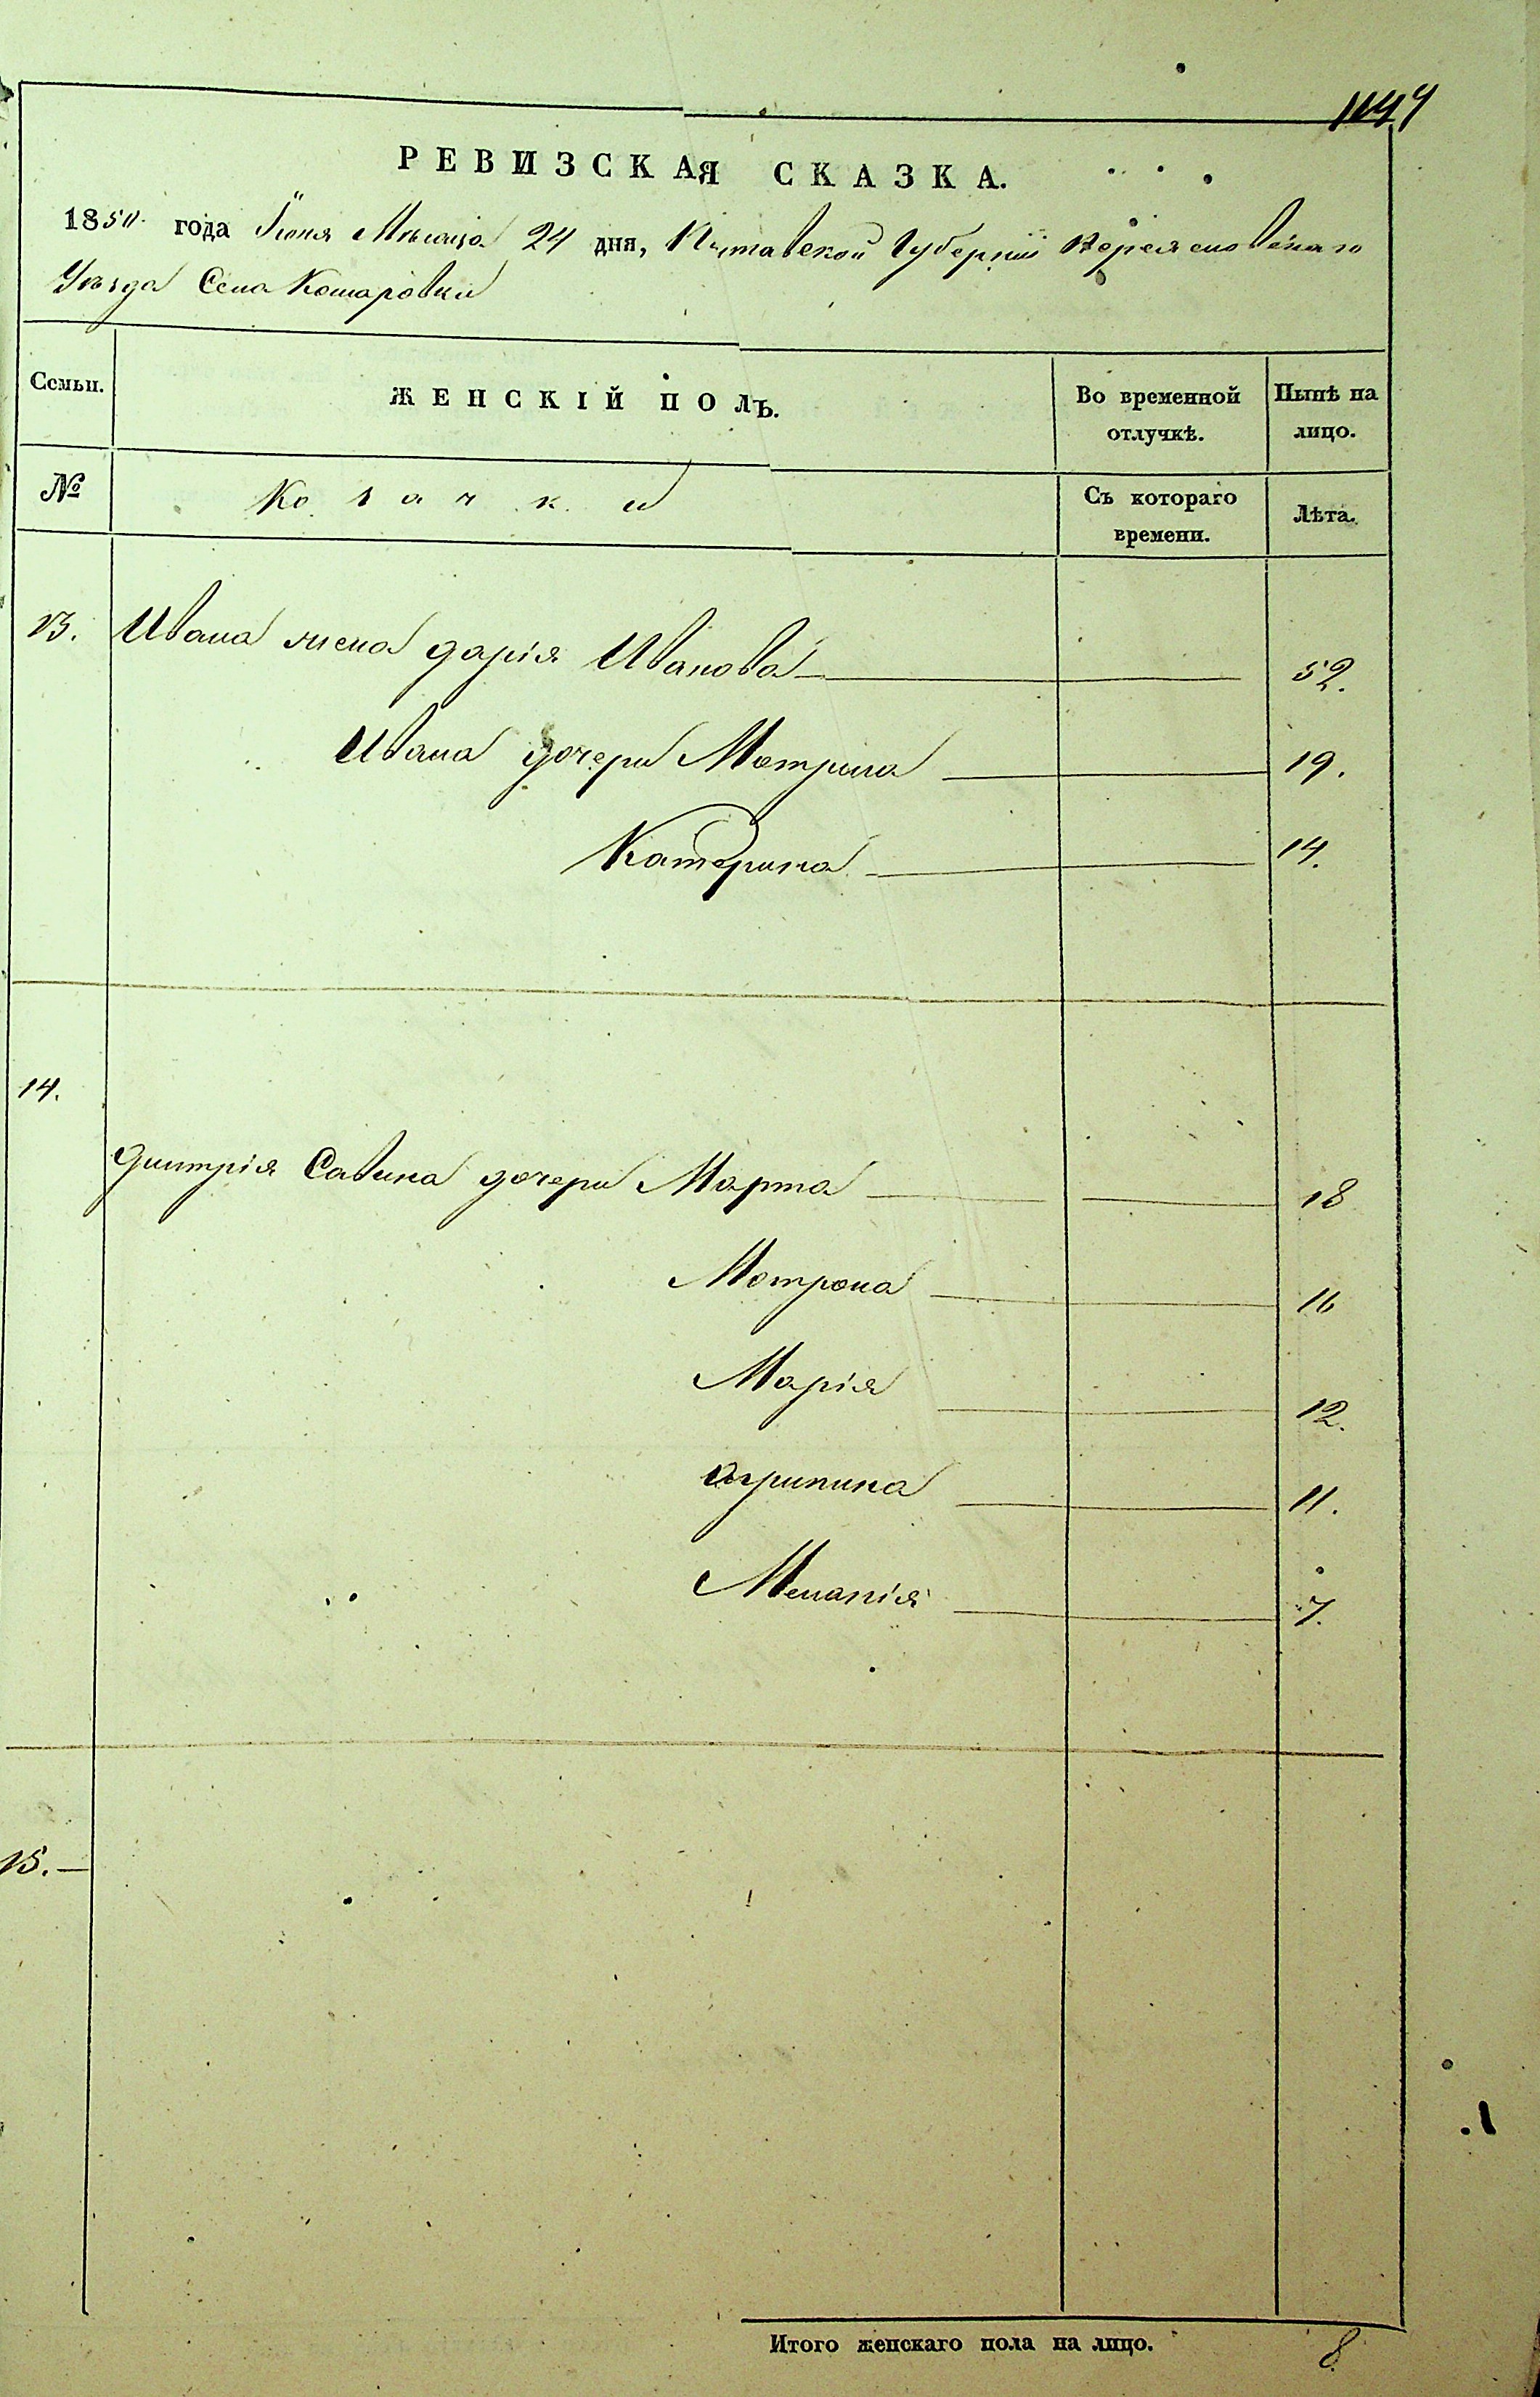 1044
РЕВИЗСКАЯ СКАЗКА.
1850 года Іюня Мѣсяца 24 дня, Полтавской Губерніи Переясловскаго
Уѣзда Села Комаровки
Семьи. ЖЕНСКІЙ ПОЛЪ. Во временной отлучкѣ. Нынѣ на лицо.
№ Козачки Съ котораго времени. Лѣта.
13. Ивана жена дарія Иванова 52.
Ивана дочери Мотрина 19.
Катерина 14.
14.
дмитрія Савина дочери Марта 18
Мотрона 16
Марія 12.
Агрипина 11.
Меланія 7.
15.
Итого женскаго пола на лицо. 8